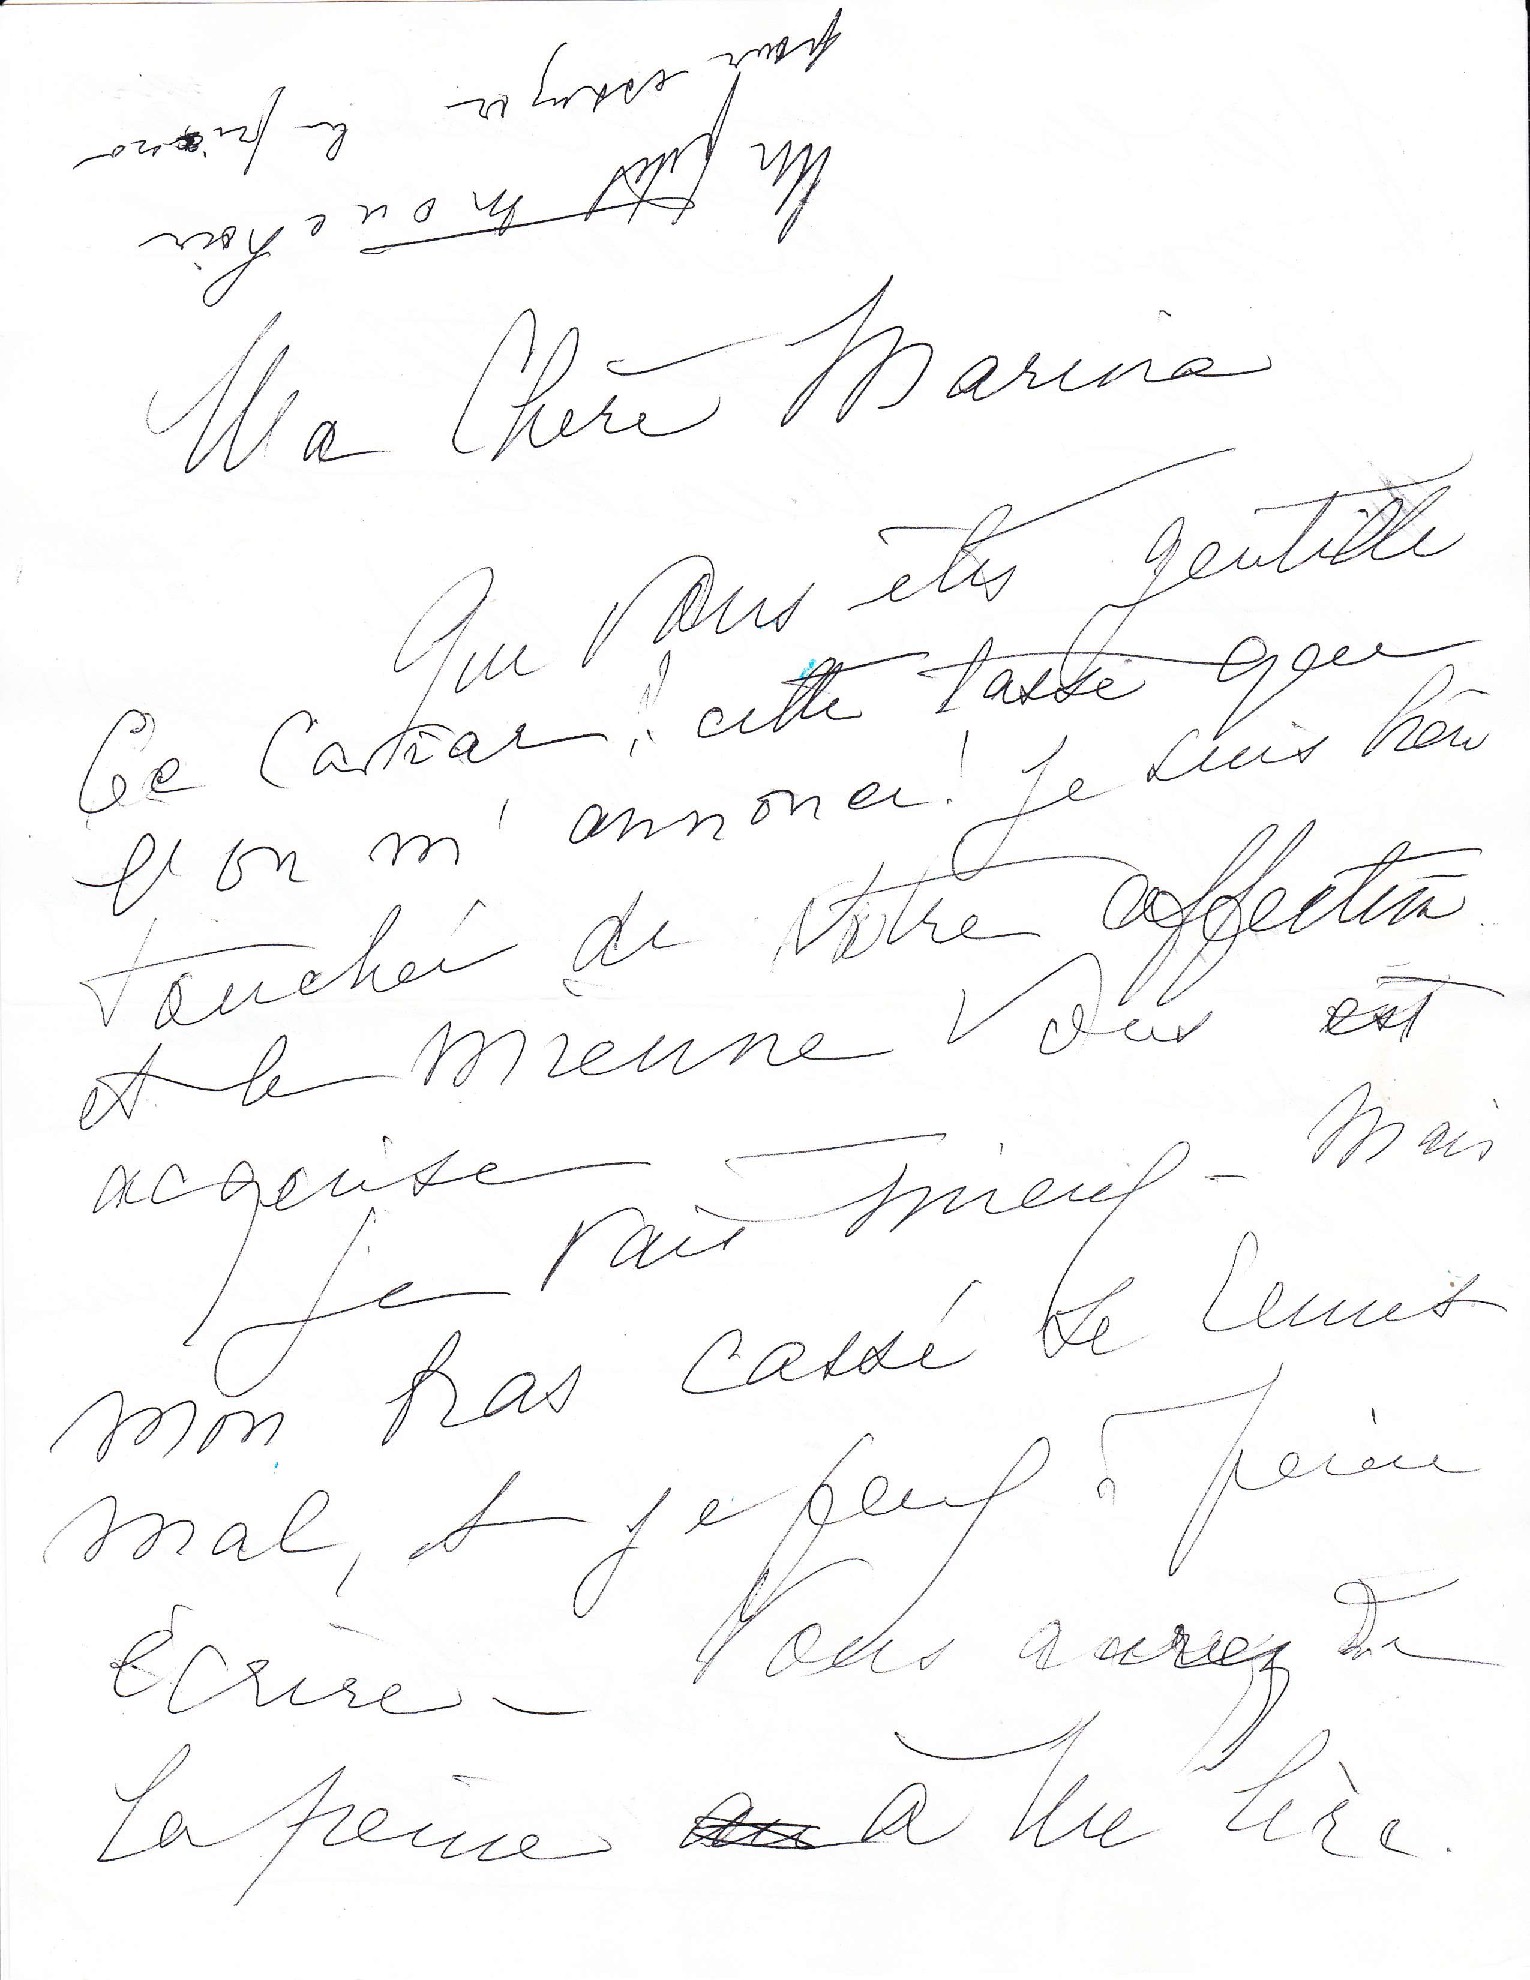 Ma Chère Marina
Que vous êtes gentille
Ce Caviar! cette tasse que
l'on m'annonce! je suis très
touchée de votre affection
et la mienne vous est
acquise
je vais mieux - Mais
mon bras cassé se remet
mal, et je peux à peine
écrire - Vous aurez de
la peine à me lire.
Un petit mouchoir
pour essuyer le piano